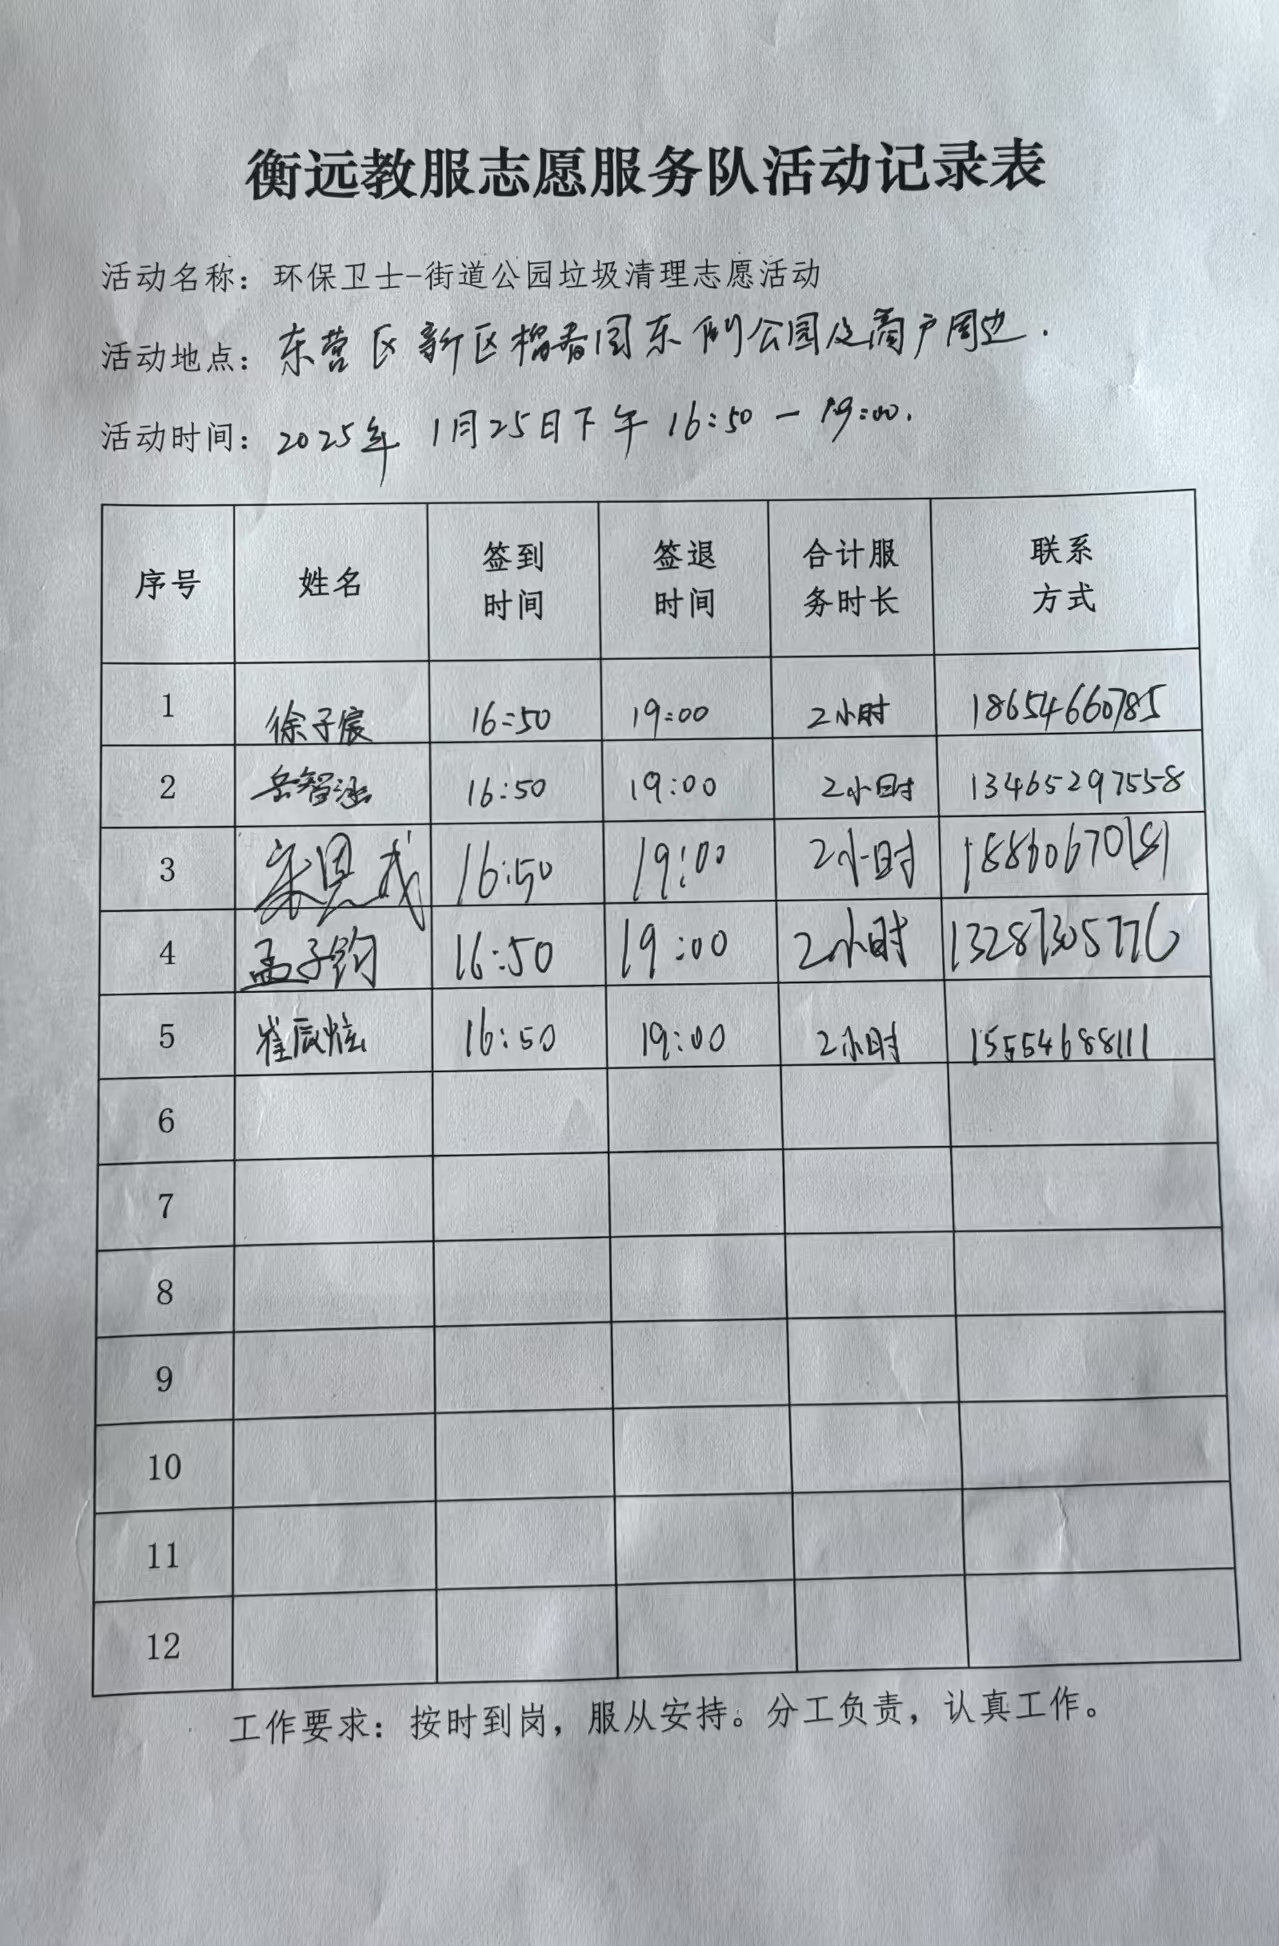 衡远教服志愿服务队活动记录表
活动名称：环保卫士-街道公园垃圾清理志愿活动
活动地点：东营区新区榴香园东侧公园及商户周边.
活动时间：2025年 1月25日下午 16:50 — 19:00.
序号 姓名 签到时间 签退时间 合计服务时长 联系方式
1 徐子宸 16:50 19:00 2小时 18654660785
2 岳智涵 16:50 19:00 2小时 13465297558
3 宋恩成 16:50 19:00 2小时
4 孟子钧 16:50 19:00 2小时 13287305776
5 崔宸炫 16:50 19:00 2小时 15554688111
6
7
8
9
10
11
12
工作要求：按时到岗，服从安持。分工负责，认真工作。